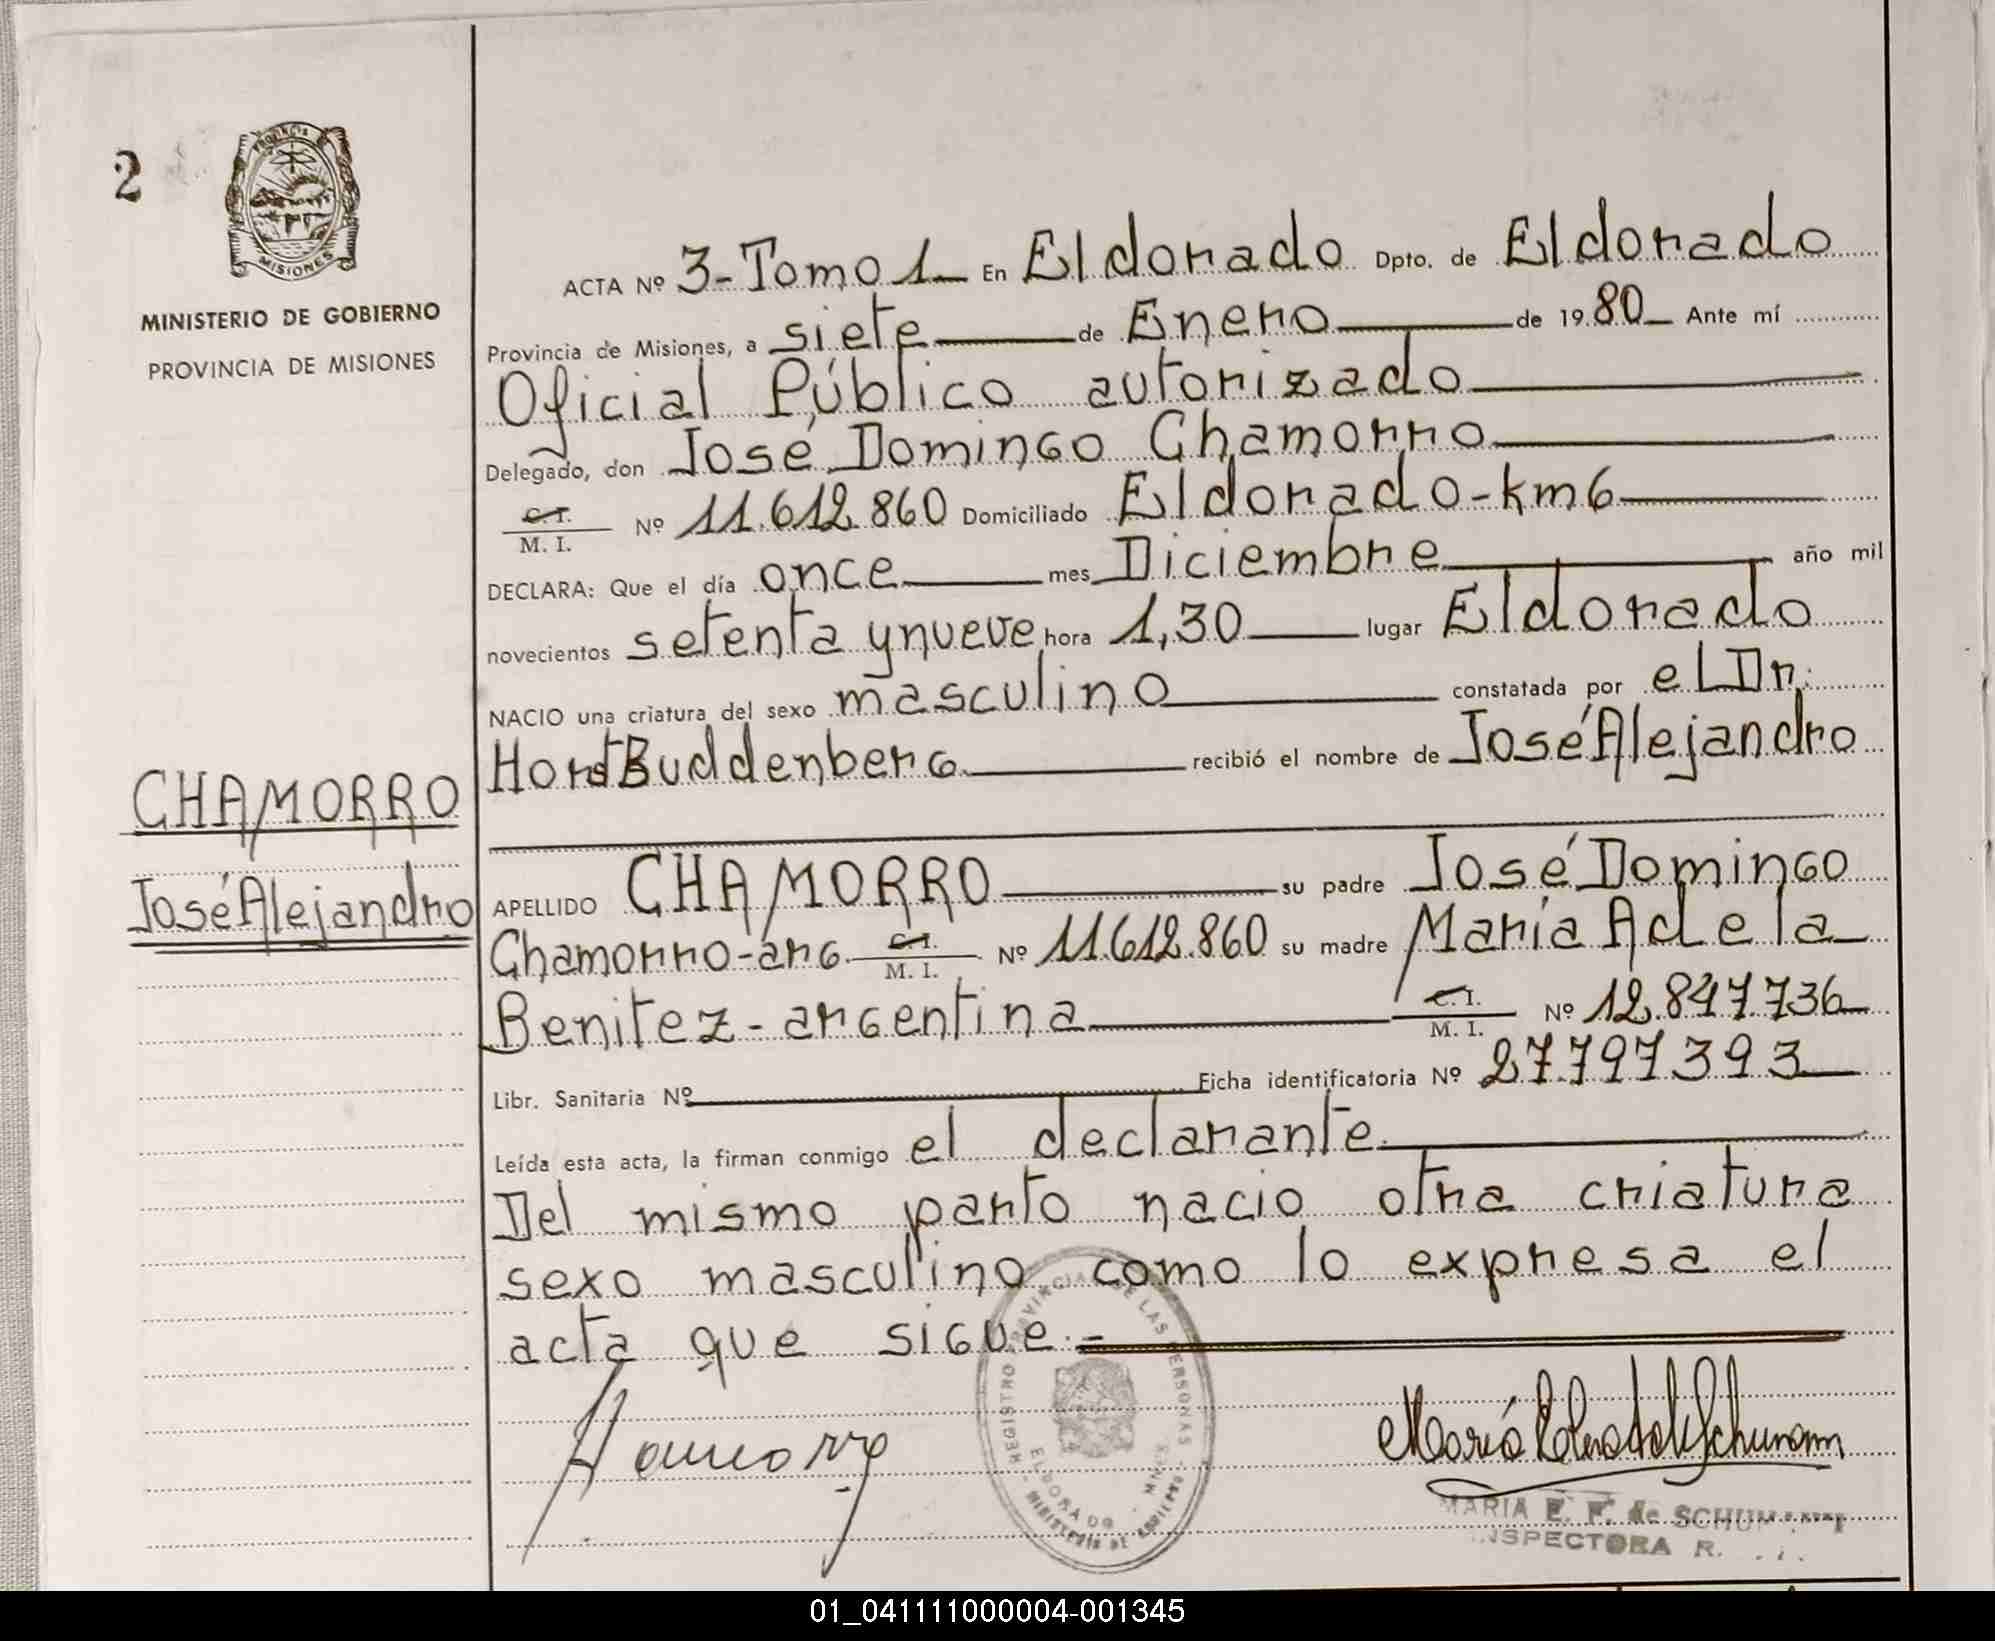 2
PROVINCIA
MISIONES
MINISTERIO DE GOBIERNO
PROVINCIA DE MISIONES
CHAMORRO
José Alejandro
ACTA Nº 3-Tomo 1 En Eldorado Dpto. de Eldorado
Provincia de Misiones, a siete de Enero de 1980 Ante mí
Oficial Público autorizado
Delegado, don José Domingo Chamorro
C.I.
M. I. Nº 11.612.860 Domiciliado Eldorado-km6
DECLARA: Que el día once mes Diciembre año mil
novecientos setenta y nueve hora 1,30 lugar Eldorado
NACIO una criatura del sexo masculino constatada por el Dr.
Horst Buddenberg recibió el nombre de José Alejandro
APELLIDO CHAMORRO su padre José Domingo
Chamorro-arg. C.I. M. I. Nº 11.612.860 su madre María Adela
Benitez-argentina C.I. M. I. Nº 12.847.736
Libr. Sanitaria Nº Ficha identificatoria Nº 27.797.393
Leída esta acta, la firman conmigo el declarante.
Del mismo parto nacio otra criatura
sexo masculino como lo expresa el
acta que sigue.-
REGISTRO PROVINCIAL DE LAS PERSONAS
ELDORADO - MNES
MINISTERIO DE GOBIERNO
MARIA E. F. de SCHUMANN
INSPECTORA R.
01_041111000004-001345